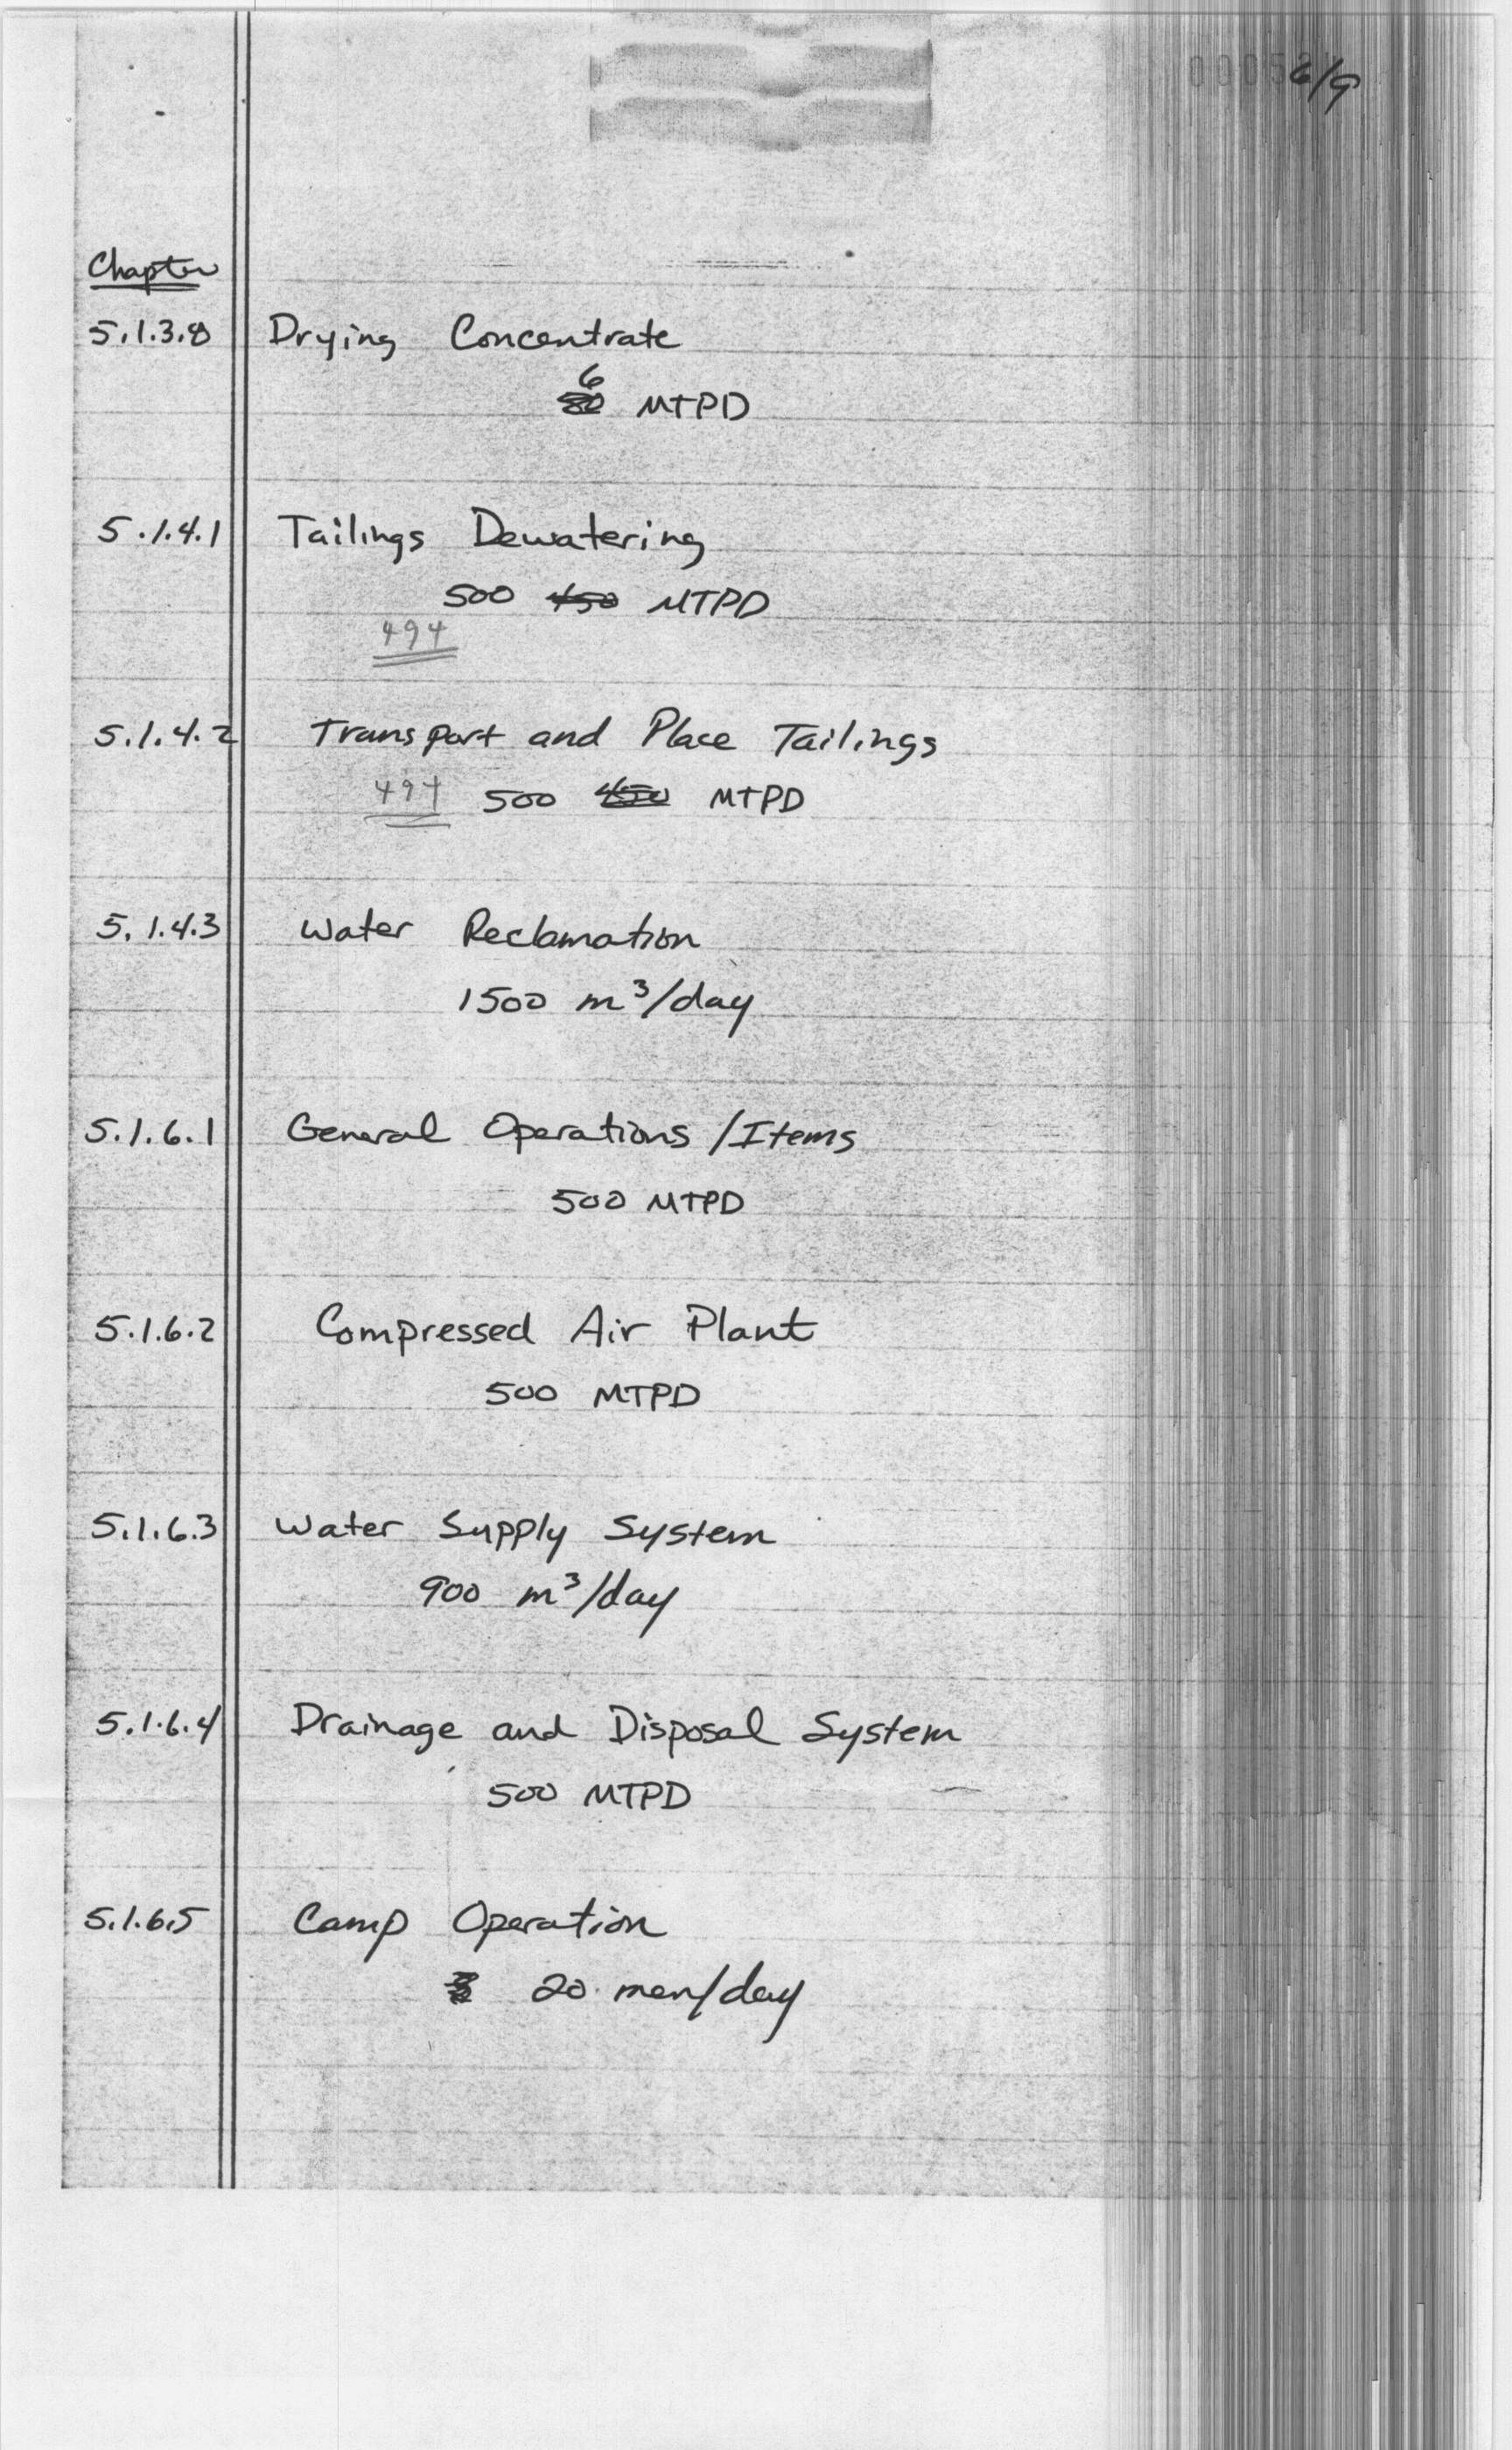 6/9
Chapter
5.1.3.8 Drying Concentrate
6
MTPD
5.1.4.1 Tailings Dewatering
500 450 MTPD
494
5.1.4.2 Transport and Place Tailings
494 500 450 MTPD
5.1.4.3 Water Reclamation
1500 m³/day
5.1.6.1 General Operations/Items
500 MTPD
5.1.6.2 Compressed Air Plant
500 MTPD
5.1.6.3 Water Supply System
900 m³/day
5.1.6.4 Drainage and Disposal System
500 MTPD
5.1.6.5 Camp Operation
20 men/day